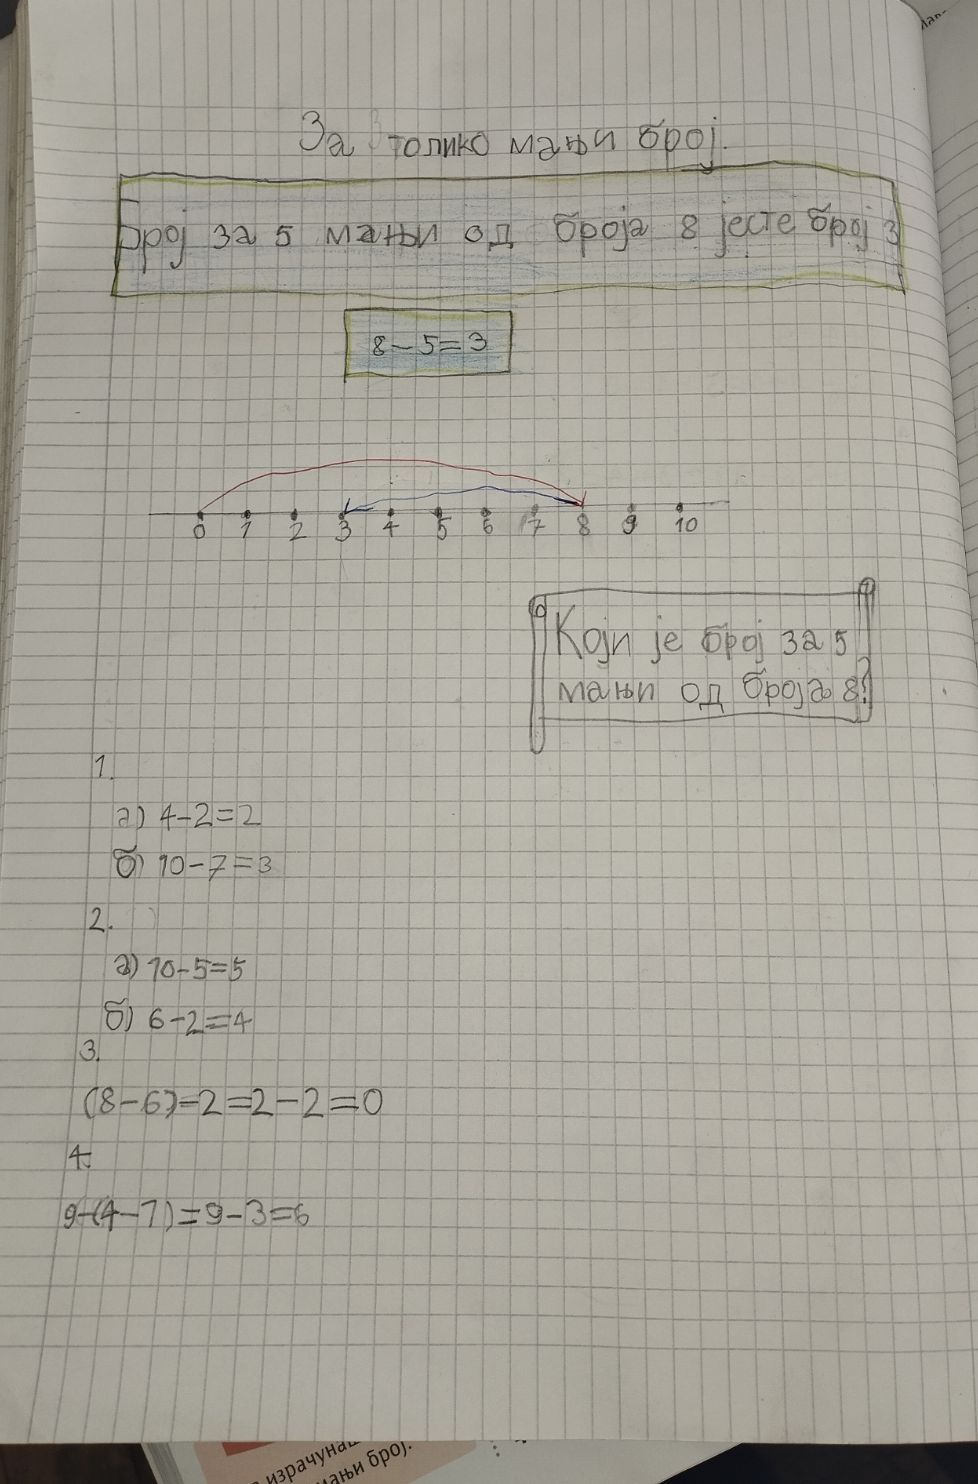 За толико мањи број.
Број за 5 мањи од броја 8 јесте број 3
8-5=3
0 1 2 3 4 5 6 7 8 9 10
Који је број за 5
мањи од броја 8?
1.
а) 4-2=2
б) 10-7=3
2.
а) 10-5=5
б) 6-2=4
3.
(8-6)-2=2-2=0
4.
9-(4-1)=9-3=6
израчуна
мањи број.